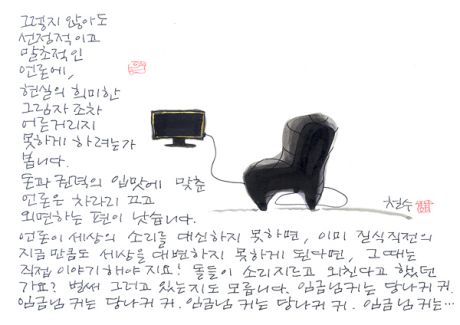 그렇지 않아도
선정적이고
말초적인
언론에,
현실의 희미한
그림자 조차
어른거리지
못하게 하려는가
봅니다.
돈과 권력의 입맛에 맞춘
언론은 차라리 끄고
외면하는 편이 낫습니다.
철수
언론이 세상의 소리를 대신하지 못하면, 이미 질식직전의
지금 만큼도 세상을 대변하지 못하게 된다면, 그때는
직접 이야기 해야 지요! 돌들이 소리지르고 외친다고 했던
가요? 벌써 그러고 있는지도 모릅니다. 임금님 귀는 당나귀 귀.
임금님 귀는 당나귀 귀. 임금님 귀는 당나귀 귀. 임금님 귀는…